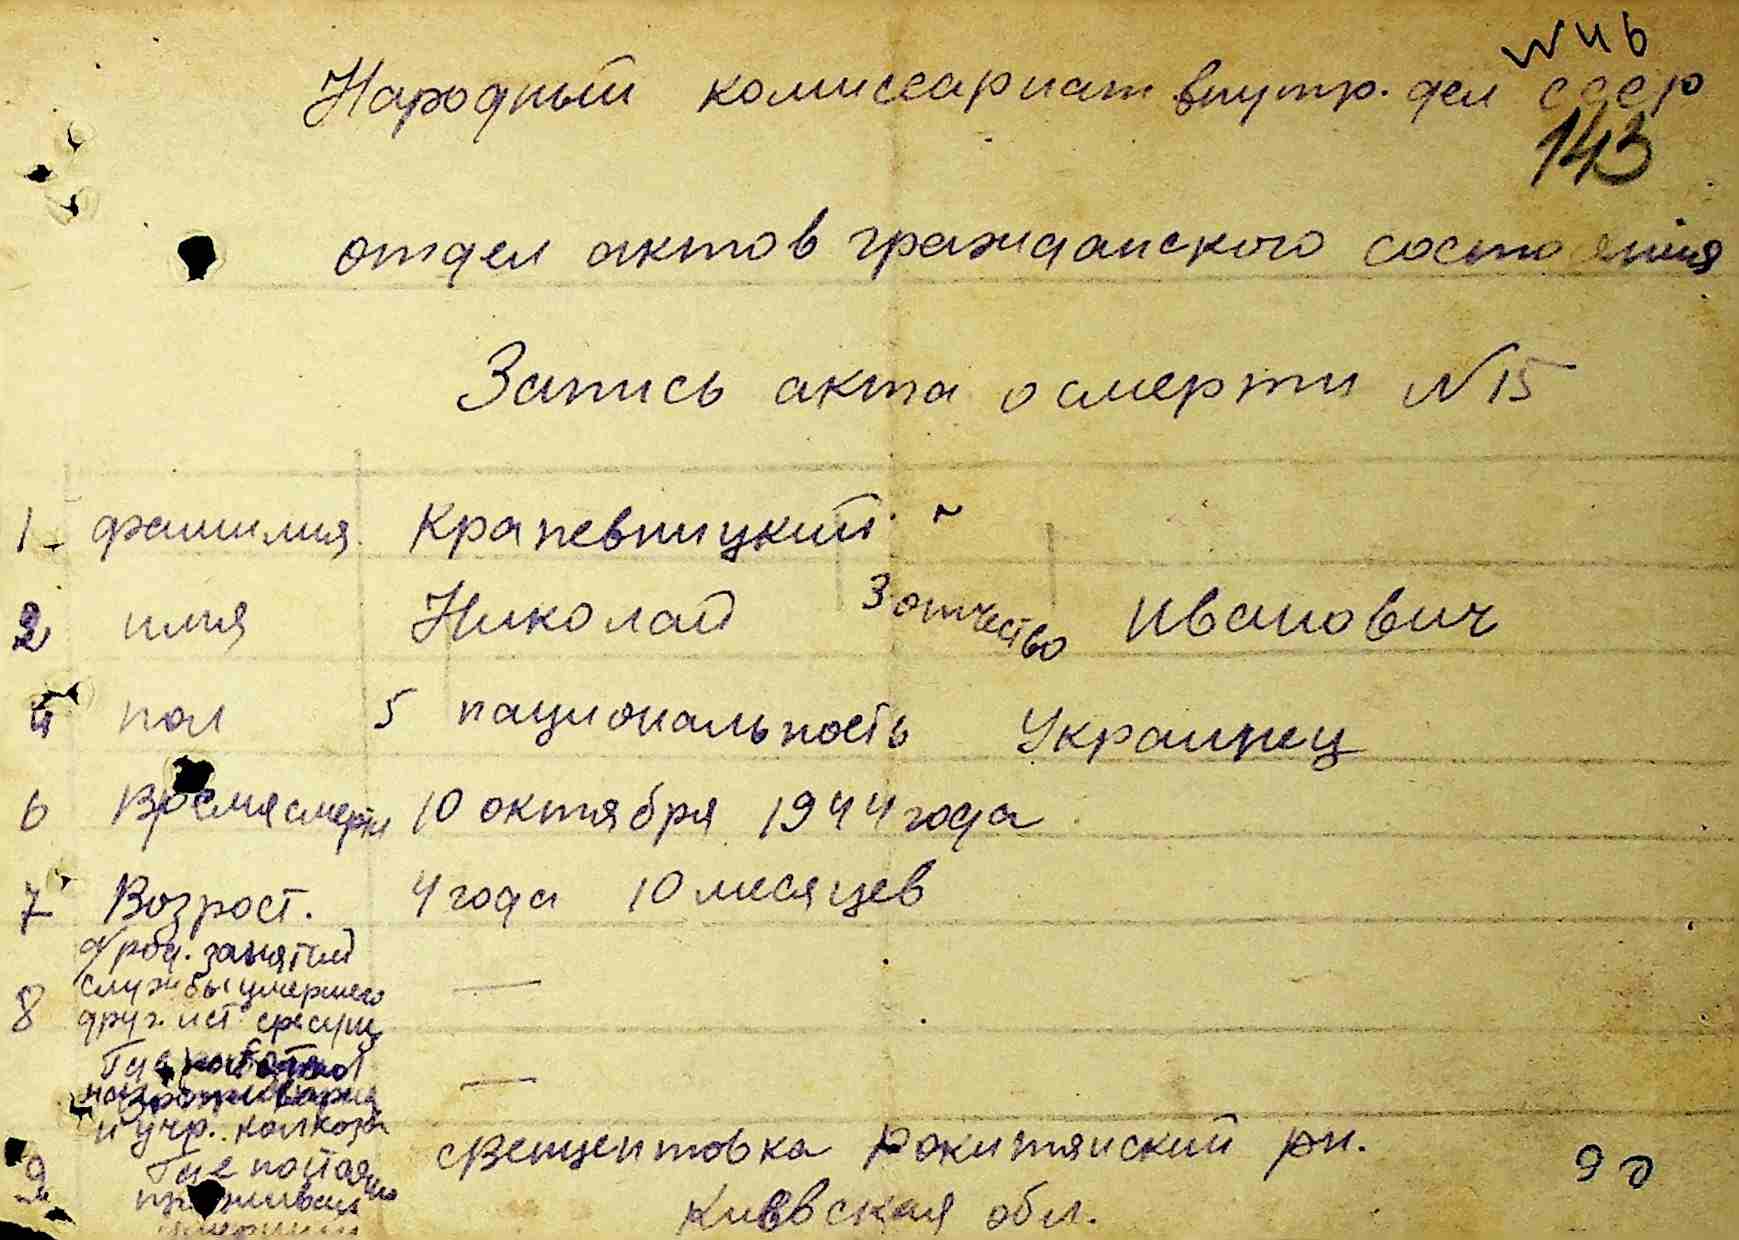 Народный комиссариат внутр. дел СССР
143
отдел актов гражданского состояния
Запись акта о смерти N 15
1. фамилия Крапевницкий
2 имя Николай 3 отчество Иванович
4 пол 5 национальность Украинец
6 Время смерти 10 октября 1944 года
7 Возрост. 4 года 10 месяцев
род. занятий
службы умершего
8 друг. ист. средсущ —
Где
—
и учр. колхоза
9 Где постоянно проживал Свенцентовка Рокитянский рн.
умерший Киевская обл.
90